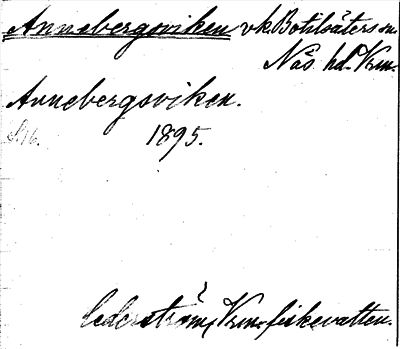 Annebergsviken vk. Botilsäters sn.
Näs hd. Vrm.
Annebergsviken.
S. 16. 1895.
Cederström, Vrm. fiskevatten.